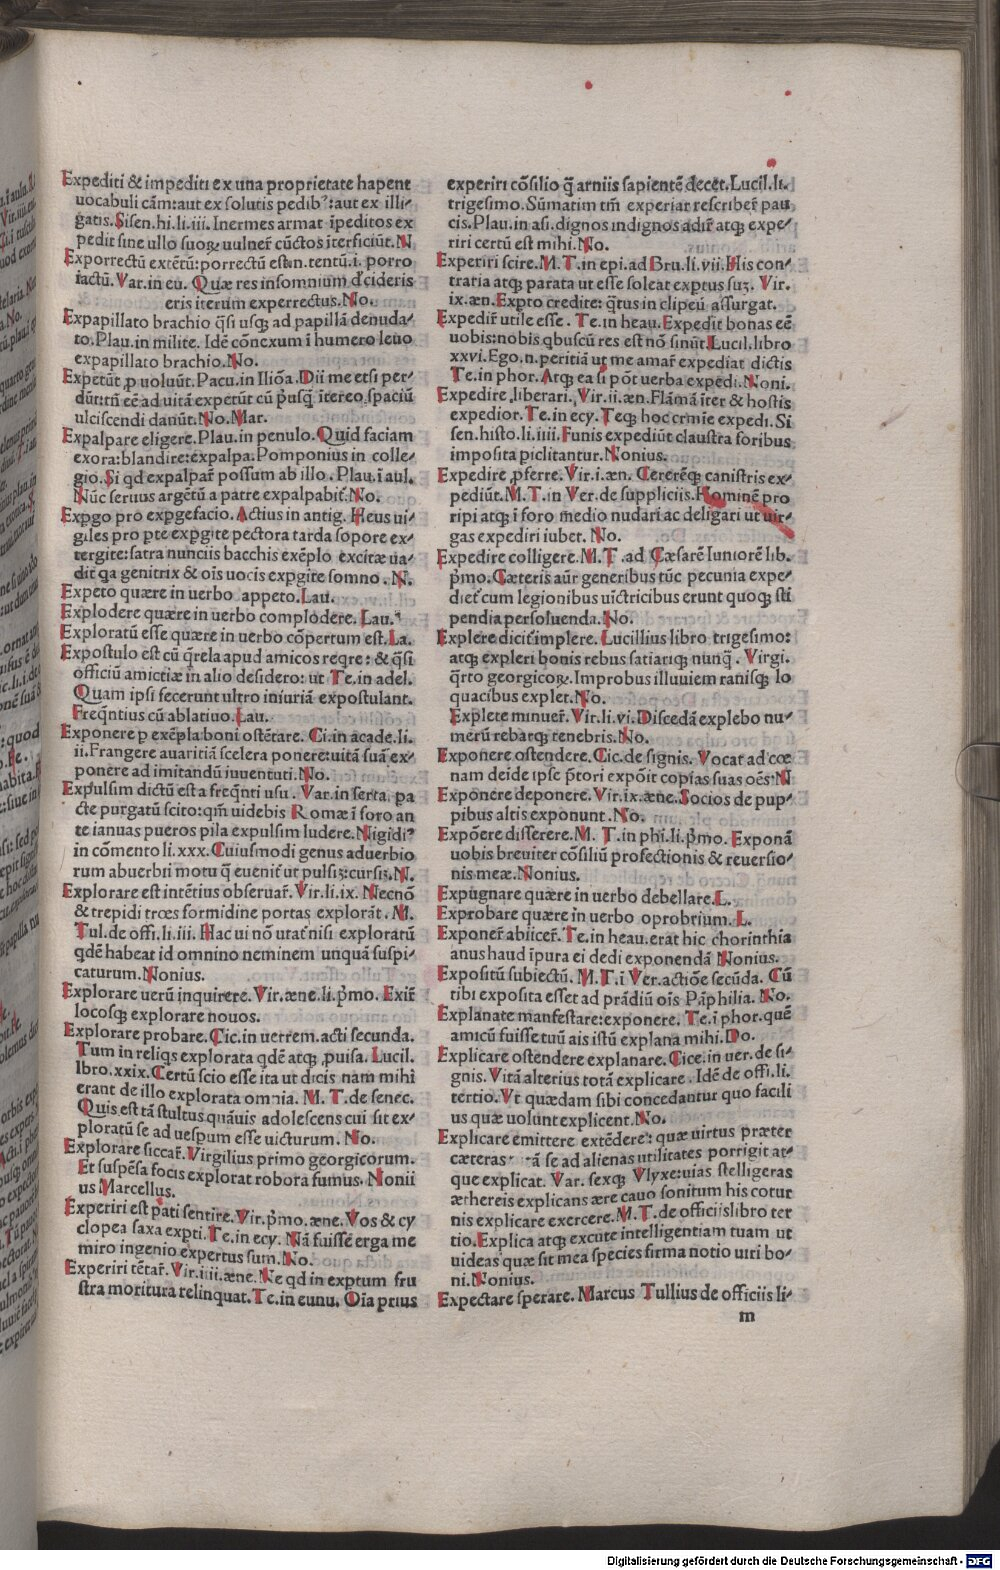 Expediti & impediti ex una proprietate hapent
uocabuli cām:aut ex solutis pedibꝰ:aut ex illi⸗
gatis. Sisen.hi.li.iii. Inermes armat īpeditos ex
pedit sine ullo suoꝝ uulnerꝭ cūctos īterficiūt. N
Exporrectū extētū:porrectū est.n.tentū.i. porro
iactū. Var.in eu. Quæ res in somnium d'cideris
eris iterum experrectus. No.
Expapillato brachio q̄si usq; ad papillā denuda⸗
to. Plau.in milite. Idē cōnexum ī humero leuo
expapillato brachio. No.
Expetūt ꝓ uoluūt. Pacu.in Iliōa. Dii me etsi per⸗
ulciscendi danūt. No. Mar.
Expalpare eligere. Plau.in penulo. Quid faciam
exora:blandire:expalpa. Pomponius in colle⸗
gio. Si qd expalparꝭ possum ab illo. Plau.ī aul.
Nūc seruus argētū a patre expalpabit. No.
Expgo pro expgefacio. Actius in antig. Heus ui⸗
giles pro pte expgite pectora tarda sopore ex⸗
tergite:satra nunciis bacchis exēplo excitæ ua⸗
dit qa genitrix & oīs uocis expgite somno . N.
Expeto quære in uerbo appeto. Lau.
Explodere quære in uerbo complodere. Lau.
Exploratū esse quære in uerbo cōpertum est. La.
Expostulo est cū q̄rela apud amicos reqre: & q̄si
officiū amictiæ in alio desidero: ut Te.in adel.
Quam ipsi fecerunt ultro iniuriā expostulant.
Freq̄ntius cū ablatiuo. Lau.
Exponere p exēpla boni ostētare. Ci.in acade.li.
ii. Frangere auaritiā scelera ponere:uitā suā ex⸗
ponere ad imitandū iuuentuti. No.
Expulsim dictū est a freq̄nti usu . Var.in serra. pa
cte purgatū scito:qm̄ uidebis Romæ ī foro an
te ianuas pueros pila expulsim ludere. Nigidiꝰ
in cōmento li.xxx. Cuiusmodi genus aduerbio
rum abuerbīi motu q̄ euenit ut pulsiꝫ:cursiꝫ. N.
Explorare est intētius obseruarꝭ. Vir.li.ix. Necnō
& trepidi troes formidine portas explorāt. M.
Tul.de offi.li.iii. Hac ui nō utat nisi exploratū
qdē habeat id omnino neminem unquā suspi⸗
caturum. Nonius.
Explorare uerū inquirere. Vir.æne.li.pͥmo. Exirꝭ
locosq; explorare nouos.
Explorare probare. Cic.in uerrem.acti secunda.
Tum in reliqs explorata qdē atq; puisa. Lucil.
lbro.xxix. Certū scio esse ita ut dicis nam mihi
erant de illo explorata omnia. M. T.de senec.
Quis est tā stultus quāuis adolescens cui sit ex⸗
ploratū se ad uespum esse uicturum. No.
Explorare siccarꝭ. Virgilius primo georgicorum.
Et suspēsa focis explorat robora fumus. Nonii
us Marcellus.
Experiri est pati sentire. Vir.pͥmo.æne. Vos & cy
clopea saxa expti. Te.in ecy. Nā fuisse erga me
miro ingenio expertus sum. No.
Experiri tētarꝭ. Vir.iiii.æne. Ne qd in exptum fru
stra moritura relinquat. Te.in eunu. Oīa prius
experiri cōsilio q̄ armis sapientē decet. Lucil.li.
trigesimo. Sūmatim tm̄ experiar rescriberꝭ pau
cis. Plau.in asi.dignos indignos adirꝭ atq; expe⸗
riri certū est mihi. No.
Experiri scire. M. T.in epi.ad Bru.li.vii. His con⸗
tratia atq; parata ut esse soleat exptus suꝫ. Vir.
ix.æn. Expto credite: q̄tus in clipeū assurgat.
Expedirꝭ utile esse . Te.in heau. Expedit bonas eē
uobis:nobis qbuscū res est nō sinūt. Lucil.libro
xxvi. Ego.n.peritiā ut me amarꝭ expediat dictis
Te.in phor. Atq; ea si pōt uerba expedi. Noni.
Expedire ,liberari. Vir.ii.æn. Flāmā iter & hostis
expedior. Te.in ecy. Teq; hoc crmie expedi. Si
sen.histo.li.iiii. Funis expediūt claustra foribus
imposita piclitantur. Nonius.
Expedire ꝓferre. Vir.i.æn. Cererēq; canistris ex⸗
pediūt. M. T.in Ver.de suppliciis. Hominē pro
ripi atq; ī foro medio nudari ac deligari ut uir⸗
gas expediri iubet. No.
Expedire colligere. M. T .ad Cæsarē Iuniorē lib.
pͥmo. Cæteris aūr generibus tūc pecunia expe⸗
diet cum legionibus uīctricibus erunt quoq; sti
pendia persoluenda. No.
Explere dicit implere. Lucillius libro trigesimo:
atq; expleri bonis rebus satiariq; nunq̄. Virgi.
q̄rto georgicoꝝ. Improbus illuuiem ranisq; lo
quacibus explet. No.
Explete minuerꝭ. Vir.li.vi. Discedā explebo nu⸗
merū rebatq; tenebris. No.
Exponere ostendere. Cic.de signis. Vocat ad cœ
nam deide ipse p̄tori expōit copias suas oēs. N
Exponere deponere. Vir.ix.æne. Socios de pup⸗
pibus altis exponunt. No.
Expōere disserere. M. T.in phi.li.pͥmo. Exponā
uobis breuiter cōsiliū profectionis & reuersio⸗
nis meæ. Nonius.
Expugnare quære in uerbo debellare. L.
Exprobare quære in uerbo oprobrium. L.
Exponerꝭ abiicerꝭ. Te.in heau.erat hic chorinthia
anus haud īpura ei dedi exponendā Nonius.
Expositū subiectū. M. T.ī Ver.actiōe secūda. Cū
tibi exposita esset ad prādiū oīs Pāphilia. No.
Explanate manfestare:exponere. Te.ī phor.quē
amicū fuisse tuū ais istū explana mihi. Do.
Explicare ostendere explanare. Cice.in uer.de si⸗
gnis. Vitā alterius totā explicare . Idē de offi.li.
tertio. Vt quædam sibi concedantur quo facili
us quæ uolunt explicent. No.
Explicare emittere extēdere: quæ uirtus præter
cæteras tā se ad alienas utilitates porrigit at⸗
que explicat. Var. sexq; Vlyxe:uias stelligeras
æthereis explicans ære cauo sonitum his cotur
nis explicare exercere. M. T.de officiis libro ter
tio. Explica atq; excute intelligentiam tuam ut
uideas quæ sit mea species firma notio uiri bo⸗
ni. Nonius.
Expectare sperare. Marcus Tullius de officiis li⸗
m
Digitalisierung gefördert durch die Deutsche Forschungsgemeinschaft - DFG